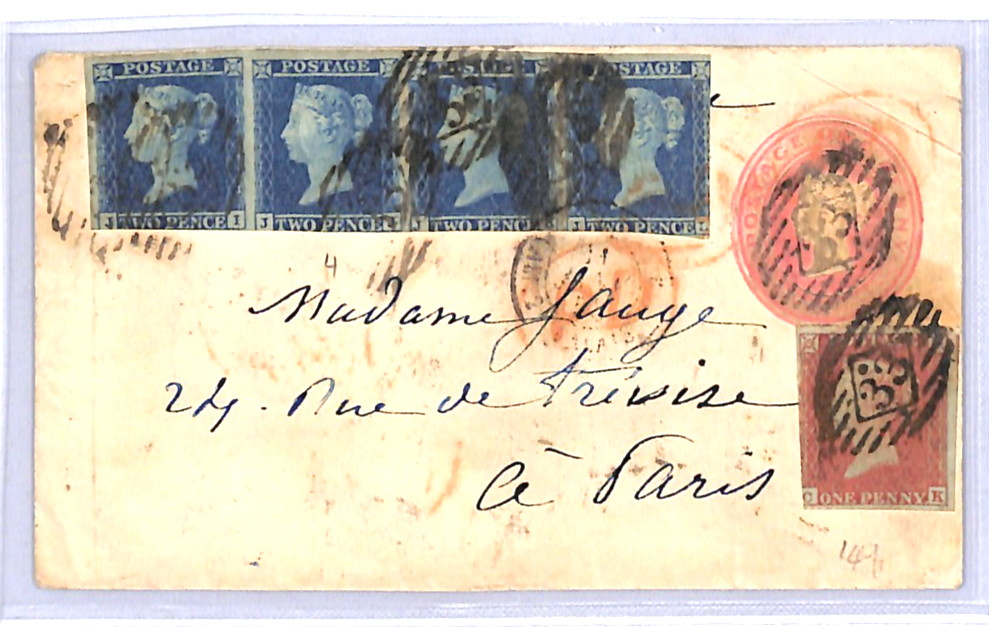 POSTAGE POSTAGE POSTAGE POSTAGE
POSTAGE ONE PENNY
J TWO PENCE I J TWO PENCE TWO PENCE TWO PENCE L
4
Madame Gauge
24. Rue de Trévise
à Paris
C ONE PENNY K